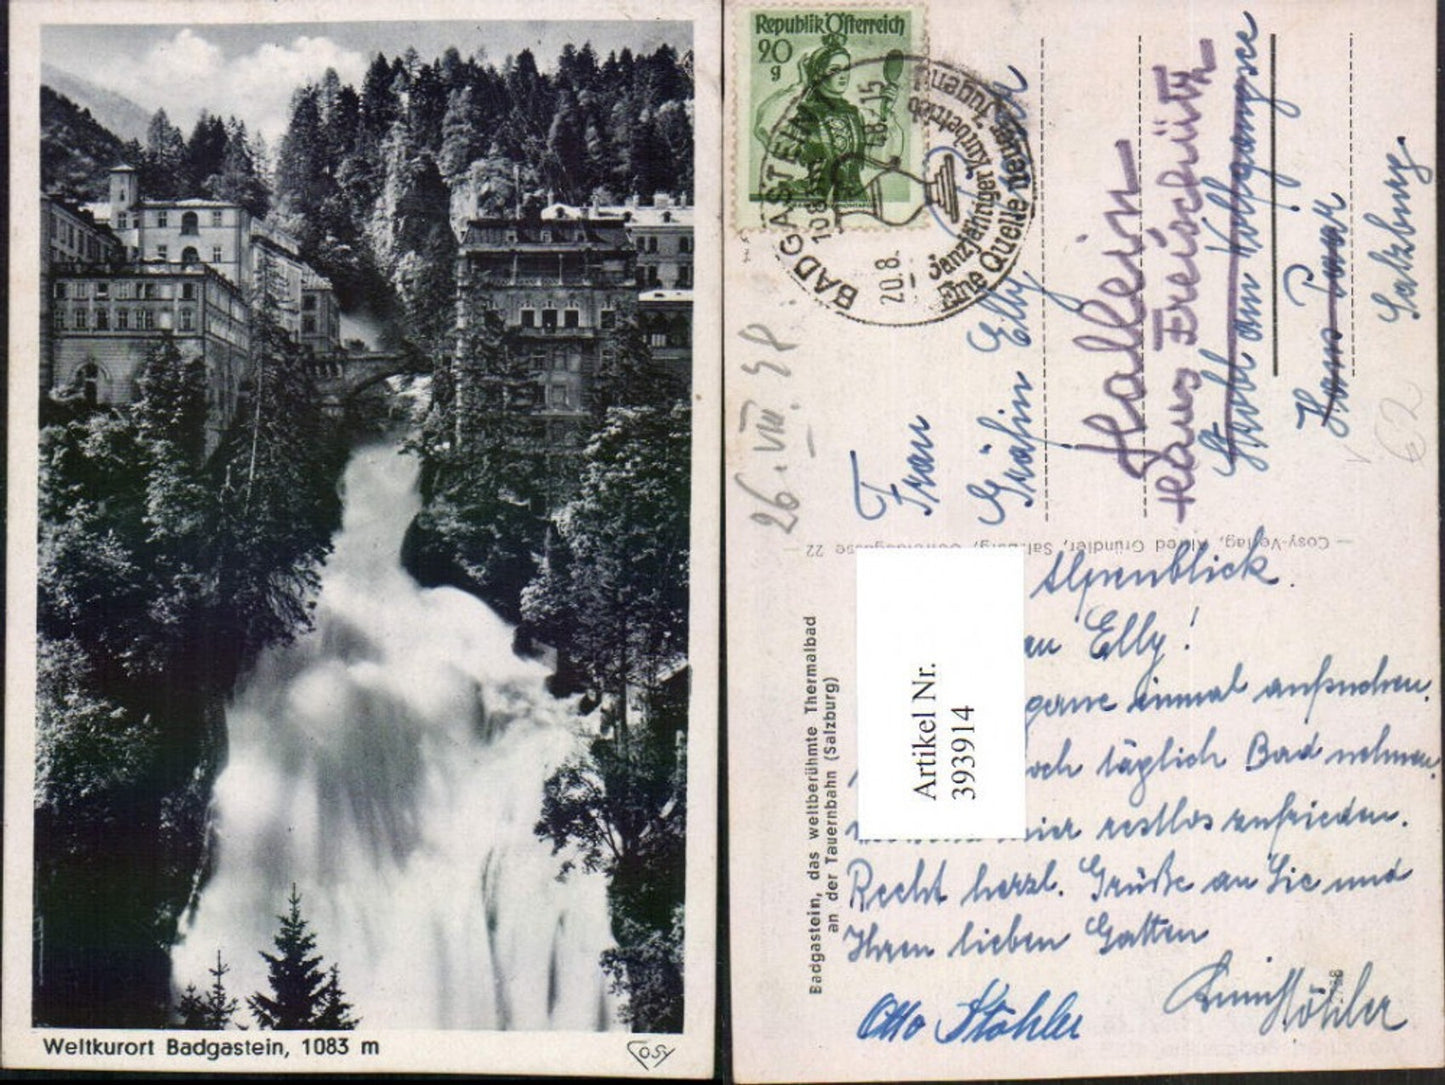 Weltkurort Badgastein, 1083 m
COSY
Republik Österreich
20
g
BADGASTEIN
20.8.
Ganzjähriger Kurbetrieb
Eine Quelle neuer Jugend
26. VIII. 58
Frau
Gräfin Elly
Hallein
Haus Freischütz
Strobl am Wolfgangsee
Haus Paar
Salzburg.
62
Cosy-Verlag, Alfred Gründler, Salzburg, 22
Badgastein, das weltberühmte Thermalbad
an der Tauernbahn (Salzburg)
Artikel Nr.
393914
Alpenblick.
Elly!
gerne einmal aufsuchen.
täglich Bad nehmen.
restlos zufrieden.
Recht herzl. Grüße an Sie und
Ihren lieben Gatten
Otto Stöhler